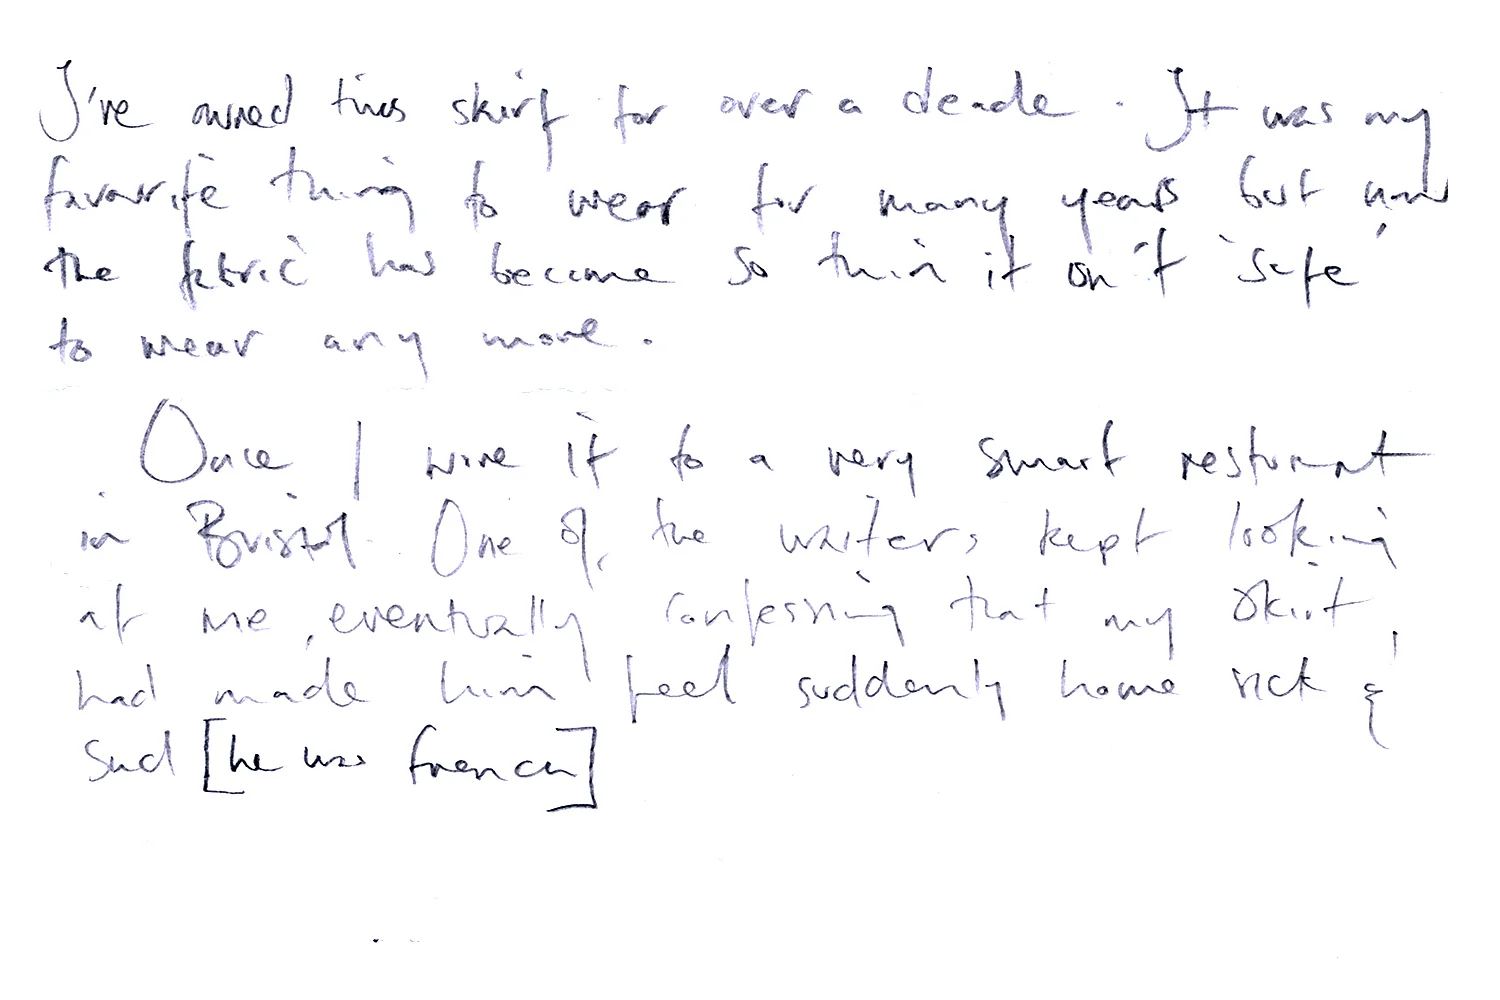 I've owned this skirt for over a decade. It was my
favourite thing to wear for many years but now
the fabric has become so thin it isn't 'safe'
to wear any more.
Once I wore it to a very smart resturant
in Bristol. One of the waiters kept looking
at me, eventually confessing that my skirt
had made him feel suddenly home sick &
sad [he was french]